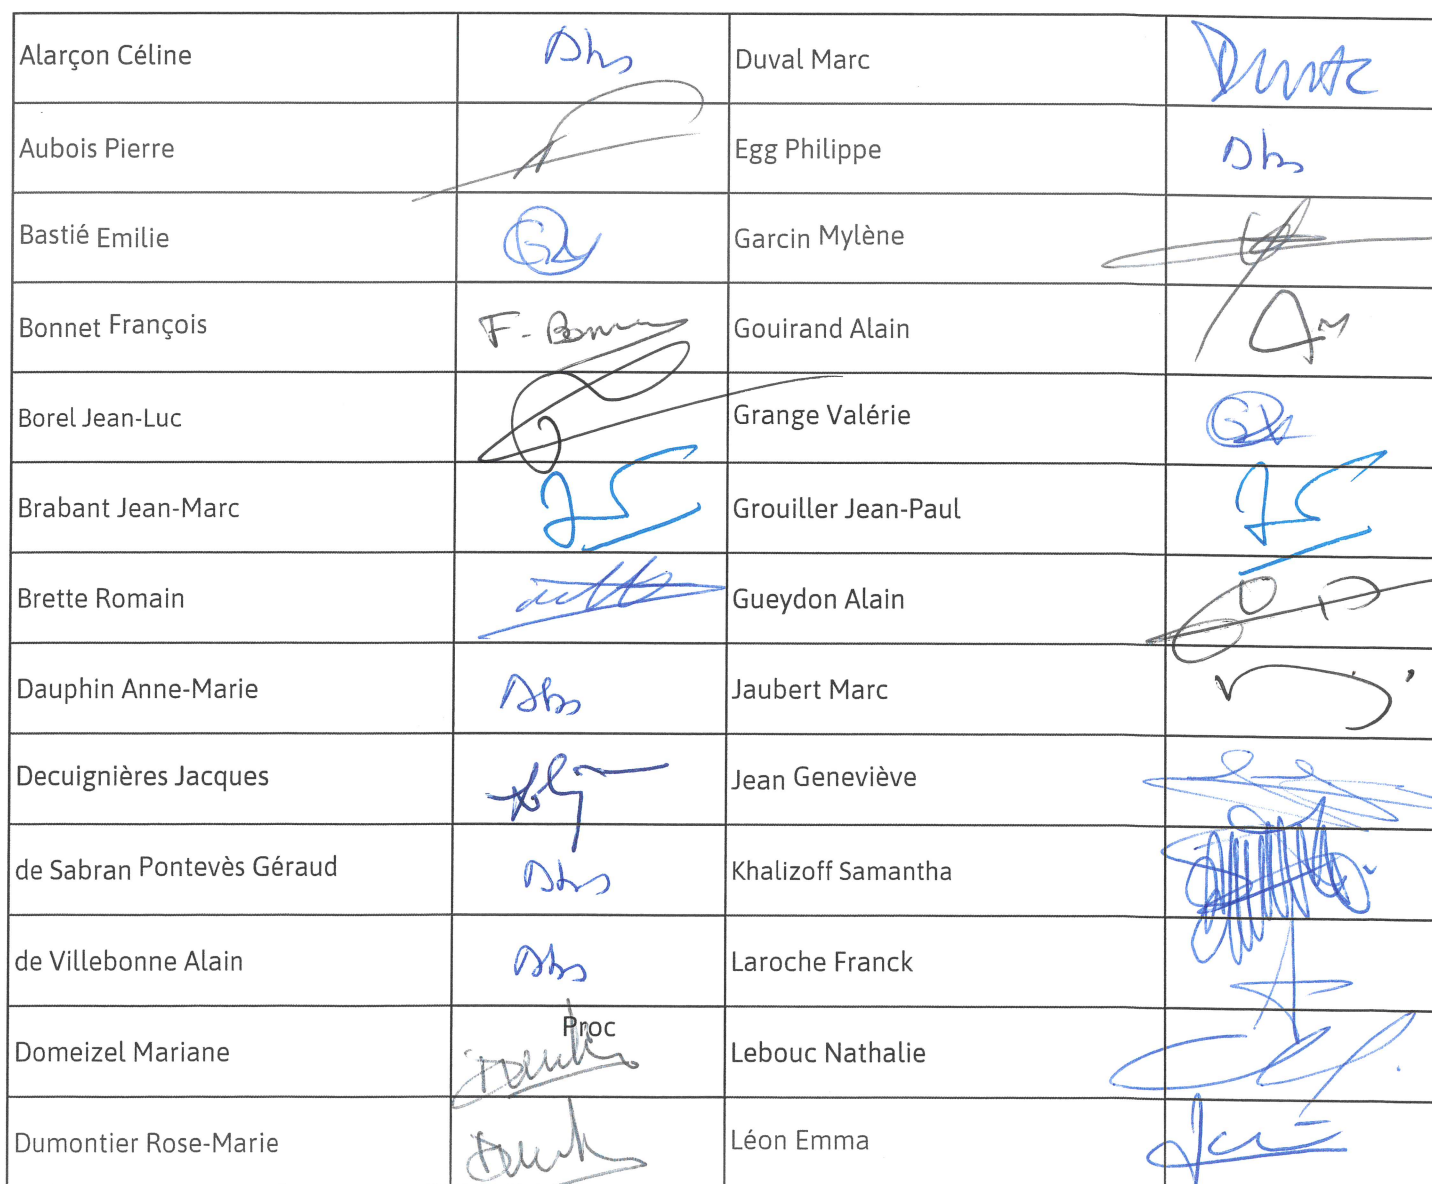 Alarçon Céline Abs Duval Marc
Aubois Pierre Egg Philippe Abs
Bastié Emilie Garcin Mylène
Bonnet François F. Bonnet Gouirand Alain
Borel Jean-Luc Grange Valérie
Brabant Jean-Marc Grouiller Jean-Paul
Brette Romain Gueydon Alain
Dauphin Anne-Marie Abs Jaubert Marc
Decuignières Jacques Jean Geneviève
de Sabran Pontevès Géraud Abs Khalizoff Samantha
de Villebonne Alain Abs Laroche Franck
Domeizel Mariane Proc Lebouc Nathalie
Dumontier Rose-Marie Léon Emma